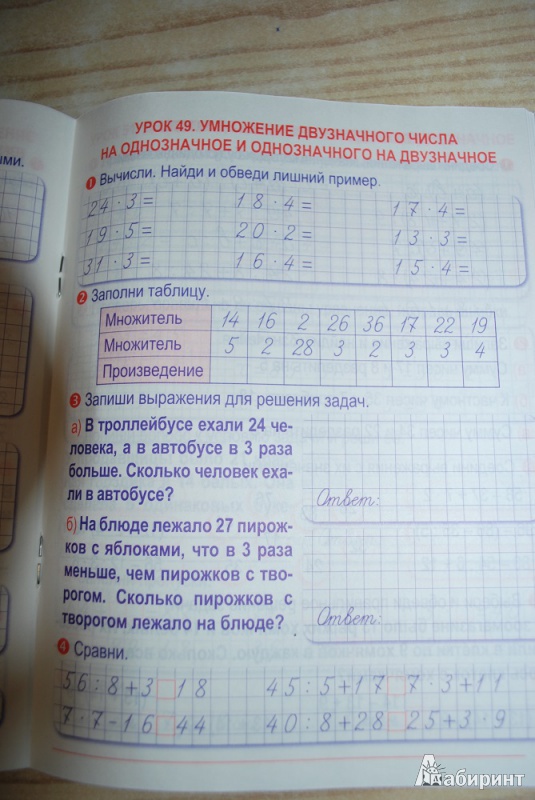 УРОК 49. УМНОЖЕНИЕ ДВУЗНАЧНОГО ЧИСЛА
НА ОДНОЗНАЧНОЕ И ОДНОЗНАЧНОГО НА ДВУЗНАЧНОЕ
ыми.
1 Вычисли. Найди и обведи лишний пример.
24 · 3 = 18 · 4 = 17 · 4 =
19 · 5 = 20 · 2 = 13 · 3 =
31 · 3 = 16 · 4 = 15 · 4 =
2 Заполни таблицу.
Множитель 14 16 2 26 36 17 22 19
Множитель 5 2 28 3 2 3 3 4
Произведение
3 Запиши выражения для решения задач.
а) В троллейбусе ехали 24 че-
ловека, а в автобусе в 3 раза
больше. Сколько человек еха-
ли в автобусе?
Ответ:
б) На блюде лежало 27 пирож-
ков с яблоками, что в 3 раза
меньше, чем пирожков с тво-
рогом. Сколько пирожков с
творогом лежало на блюде?
Ответ:
4 Сравни.
56 : 8 + 3 □ 18 45 : 5 + 17 □ 7 · 3 + 11
7 · 7 - 16 □ 44 40 : 8 + 28 □ 25 + 3 · 9
Лабиринт